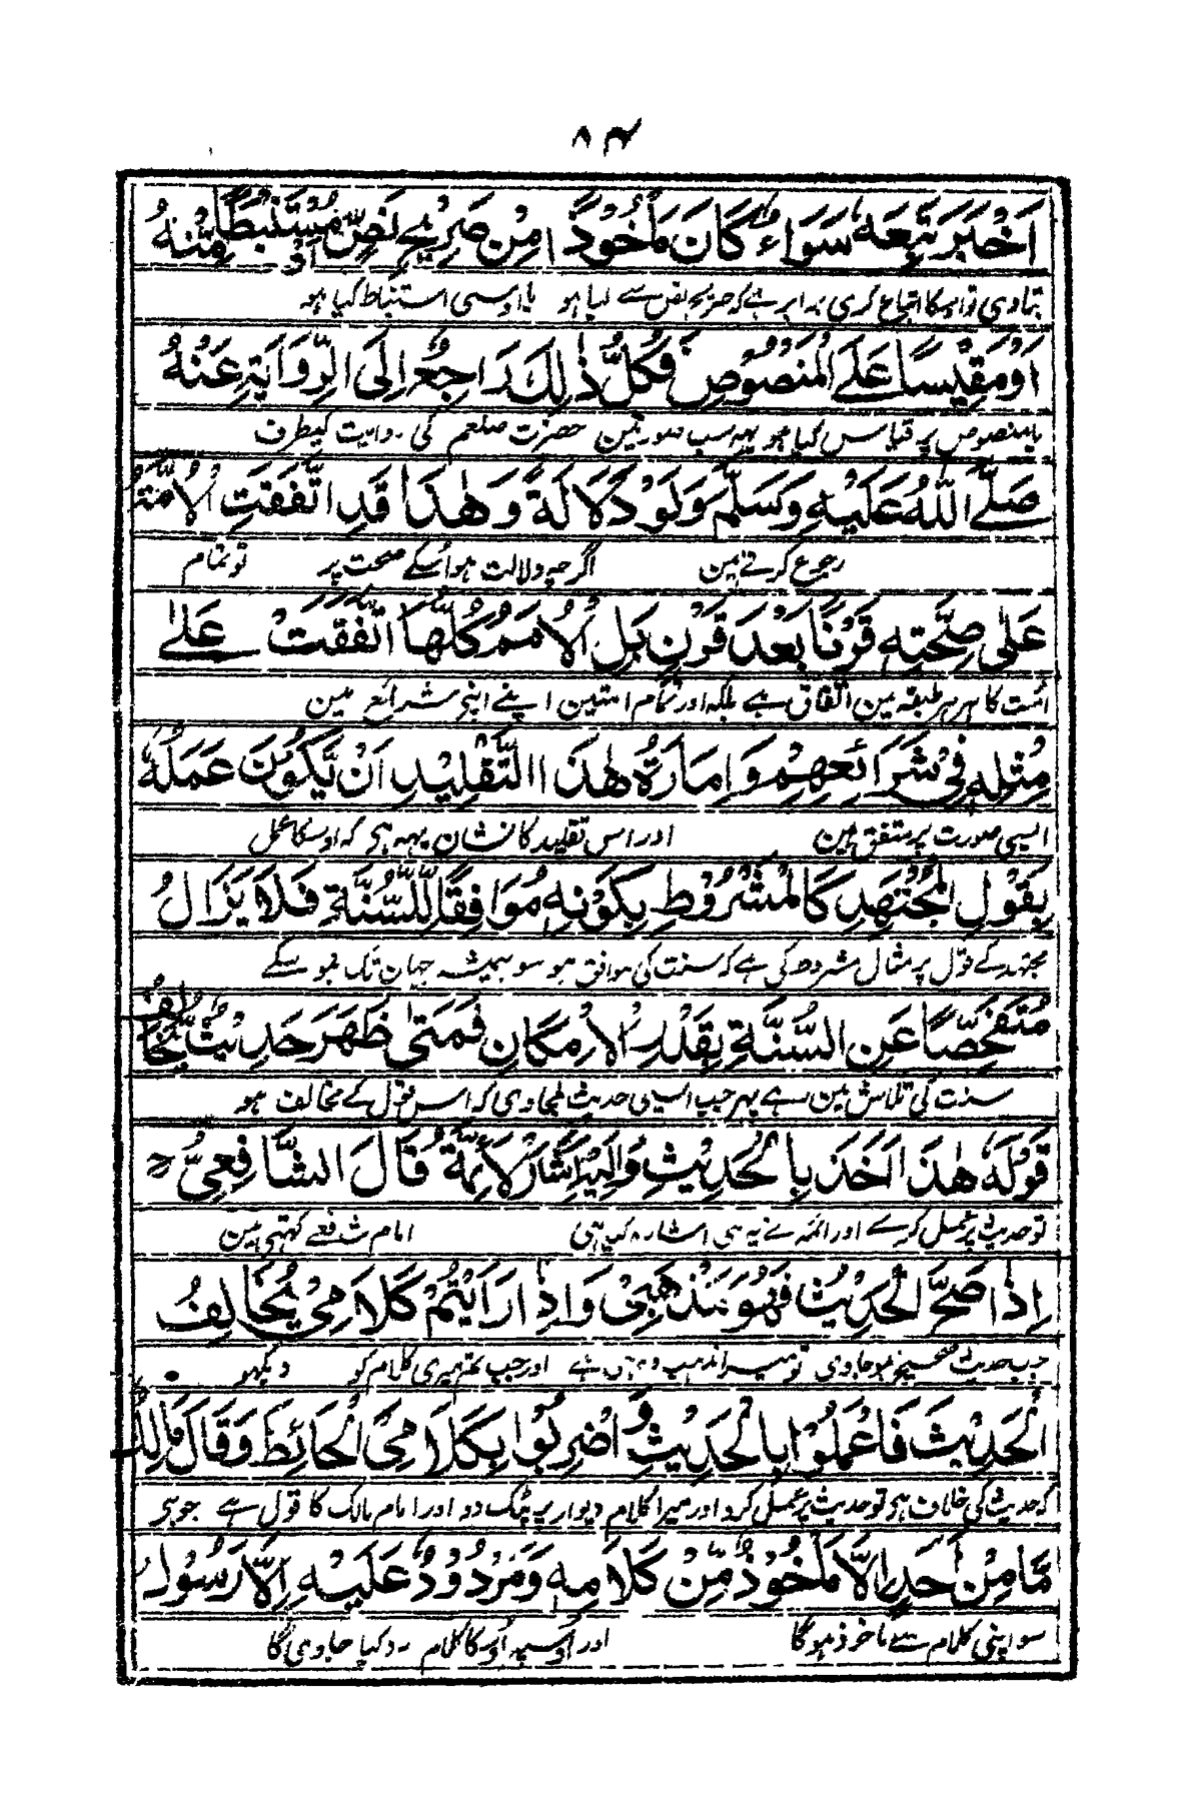 ۸۴
اَخْبَرَ تَبِعَهٗ سَوَاءٌ كَانَ مَأْخُوْذًا مِنْ صَرِيْحِ نَصٍّ اَوْ مُسْتَنْبَطًا مِنْهُ
بتادی تو اوسکا اتباع کری برابر ہے کہ صریح نص سے لیا ہو یا اوسی استنباط کیا ہو
اَوْ مَقِيْسًا عَلَى الْمَنْصُوْصِ فَكُلُّ ذٰلِكَ رَاجِعٌ اِلَى الرِّوَايَةِ عَنْهُ
یا منصوص پر قیاس کیا ہو یہہ سب صورتین حضرت صلعم کی روایت کیطرف
صَلَّى اللّٰهُ عَلَيْهِ وَسَلَّمَ وَلَوْ دَلَالَةً وَهٰذَا قَدِ اتَّفَقَتِ الْاُمَّةُ
رجوع کرتے ہین اگرچہ دلالت ہو اُسکے صحت پر تو تمام
عَلٰى صِحَّتِهٖ قَرْنًا بَعْدَ قَرْنٍ بَلِ الْاُمَمُ كُلُّهَا اتَّفَقَتْ عَلٰى
اُمت کا ہر ہر طبقہ مین اتفاق ہے بلکہ اور تمام امتین اپنے اپنی شرائع مین
مِثْلِهٖ فِيْ شَرَائِعِهِمْ وَاِمَارَةُ هٰذَا التَّقْلِيْدِ اَنْ يَّكُوْنَ عَمَلُهٗ
ایسی صورت پر متفق ہین اور اس تقلید کا نشان یہہ ہی کہ اوسکا عمل
بِقَوْلِ الْمُجْتَهِدِ كَالْمَشْرُوْطِ بِكَوْنِهٖ مُوَافِقًا لِلسُّنَّةِ فَلَا يَزَالُ
مجتہد کے قول پر مثال مشروط کی ہے کہ سنت کی موافق ہو سو ہمیشہ جہان تک ہو سکے
مُتَفَحِّصًا عَنِ السُّنَّةِ بِقَدْرِ الْاِمْكَانِ فَمَتٰى ظَهَرَ حَدِيْثٌ يُخَالِفُ
سنت کی تلاش مین رہے پہر جب ایسی حدیث ملجاوی کہ اس قول کے مخالف ہو
قَوْلَهٗ هٰذَا اَخَذَ بِالْحَدِيْثِ وَاِلَيْهِ اَشَارَ الْاَئِمَّةُ قَالَ الشَّافِعِيُّ رح
تو حدیث پر عمل کرے اور ائمہ نے یہ ہی اشارہ کیا ہی امام شافعے کہتی ہین
اِذَا صَحَّ الْحَدِيْثُ فَهُوَ مَذْهَبِيْ وَاِذَا رَاَيْتُمْ كَلَامِيْ يُخَالِفُ
جب حدیث صحیح ہو جاوی تو میرا مذہب وہی ہے اور جب تم میری کلام کو دیکہو
الْحَدِيْثَ فَاعْمَلُوْا بِالْحَدِيْثِ وَاضْرِبُوْا بِكَلَامِيَ الْحَائِطَ وَقَالَ مَالِكٌ
کہ حدیث کی خلاف ہی تو حدیث پر عمل کرو اور میرا کلام دیوار پر پٹک دو اور امام مالک کا قول ہے جو ہی
مَا مِنْ اَحَدٍ اِلَّا مَأْخُوْذٌ مِّنْ كَلَامِهٖ وَمَرْدُوْدٌ عَلَيْهِ اِلَّا رَسُوْلَ
سو اپنی کلام سے ماخوذ ہوگا اور اوسپہ اُوسکا کلام رد کیا جاویگا